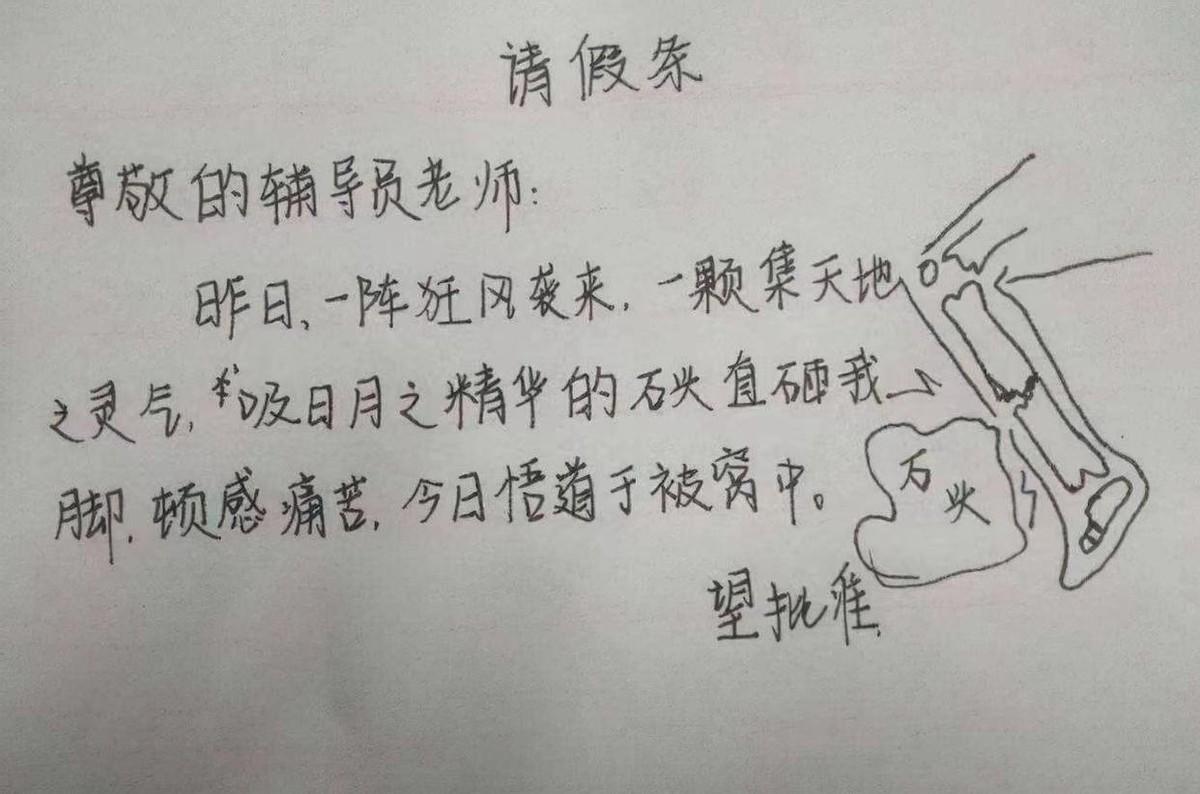 请假条
尊敬的辅导员老师:
昨日、一阵狂风袭来，一颗集天地
之灵气，吸日月之精华的石头直砸我
脚，顿感痛苦，今日悟道于被窝中。
石头
望批准